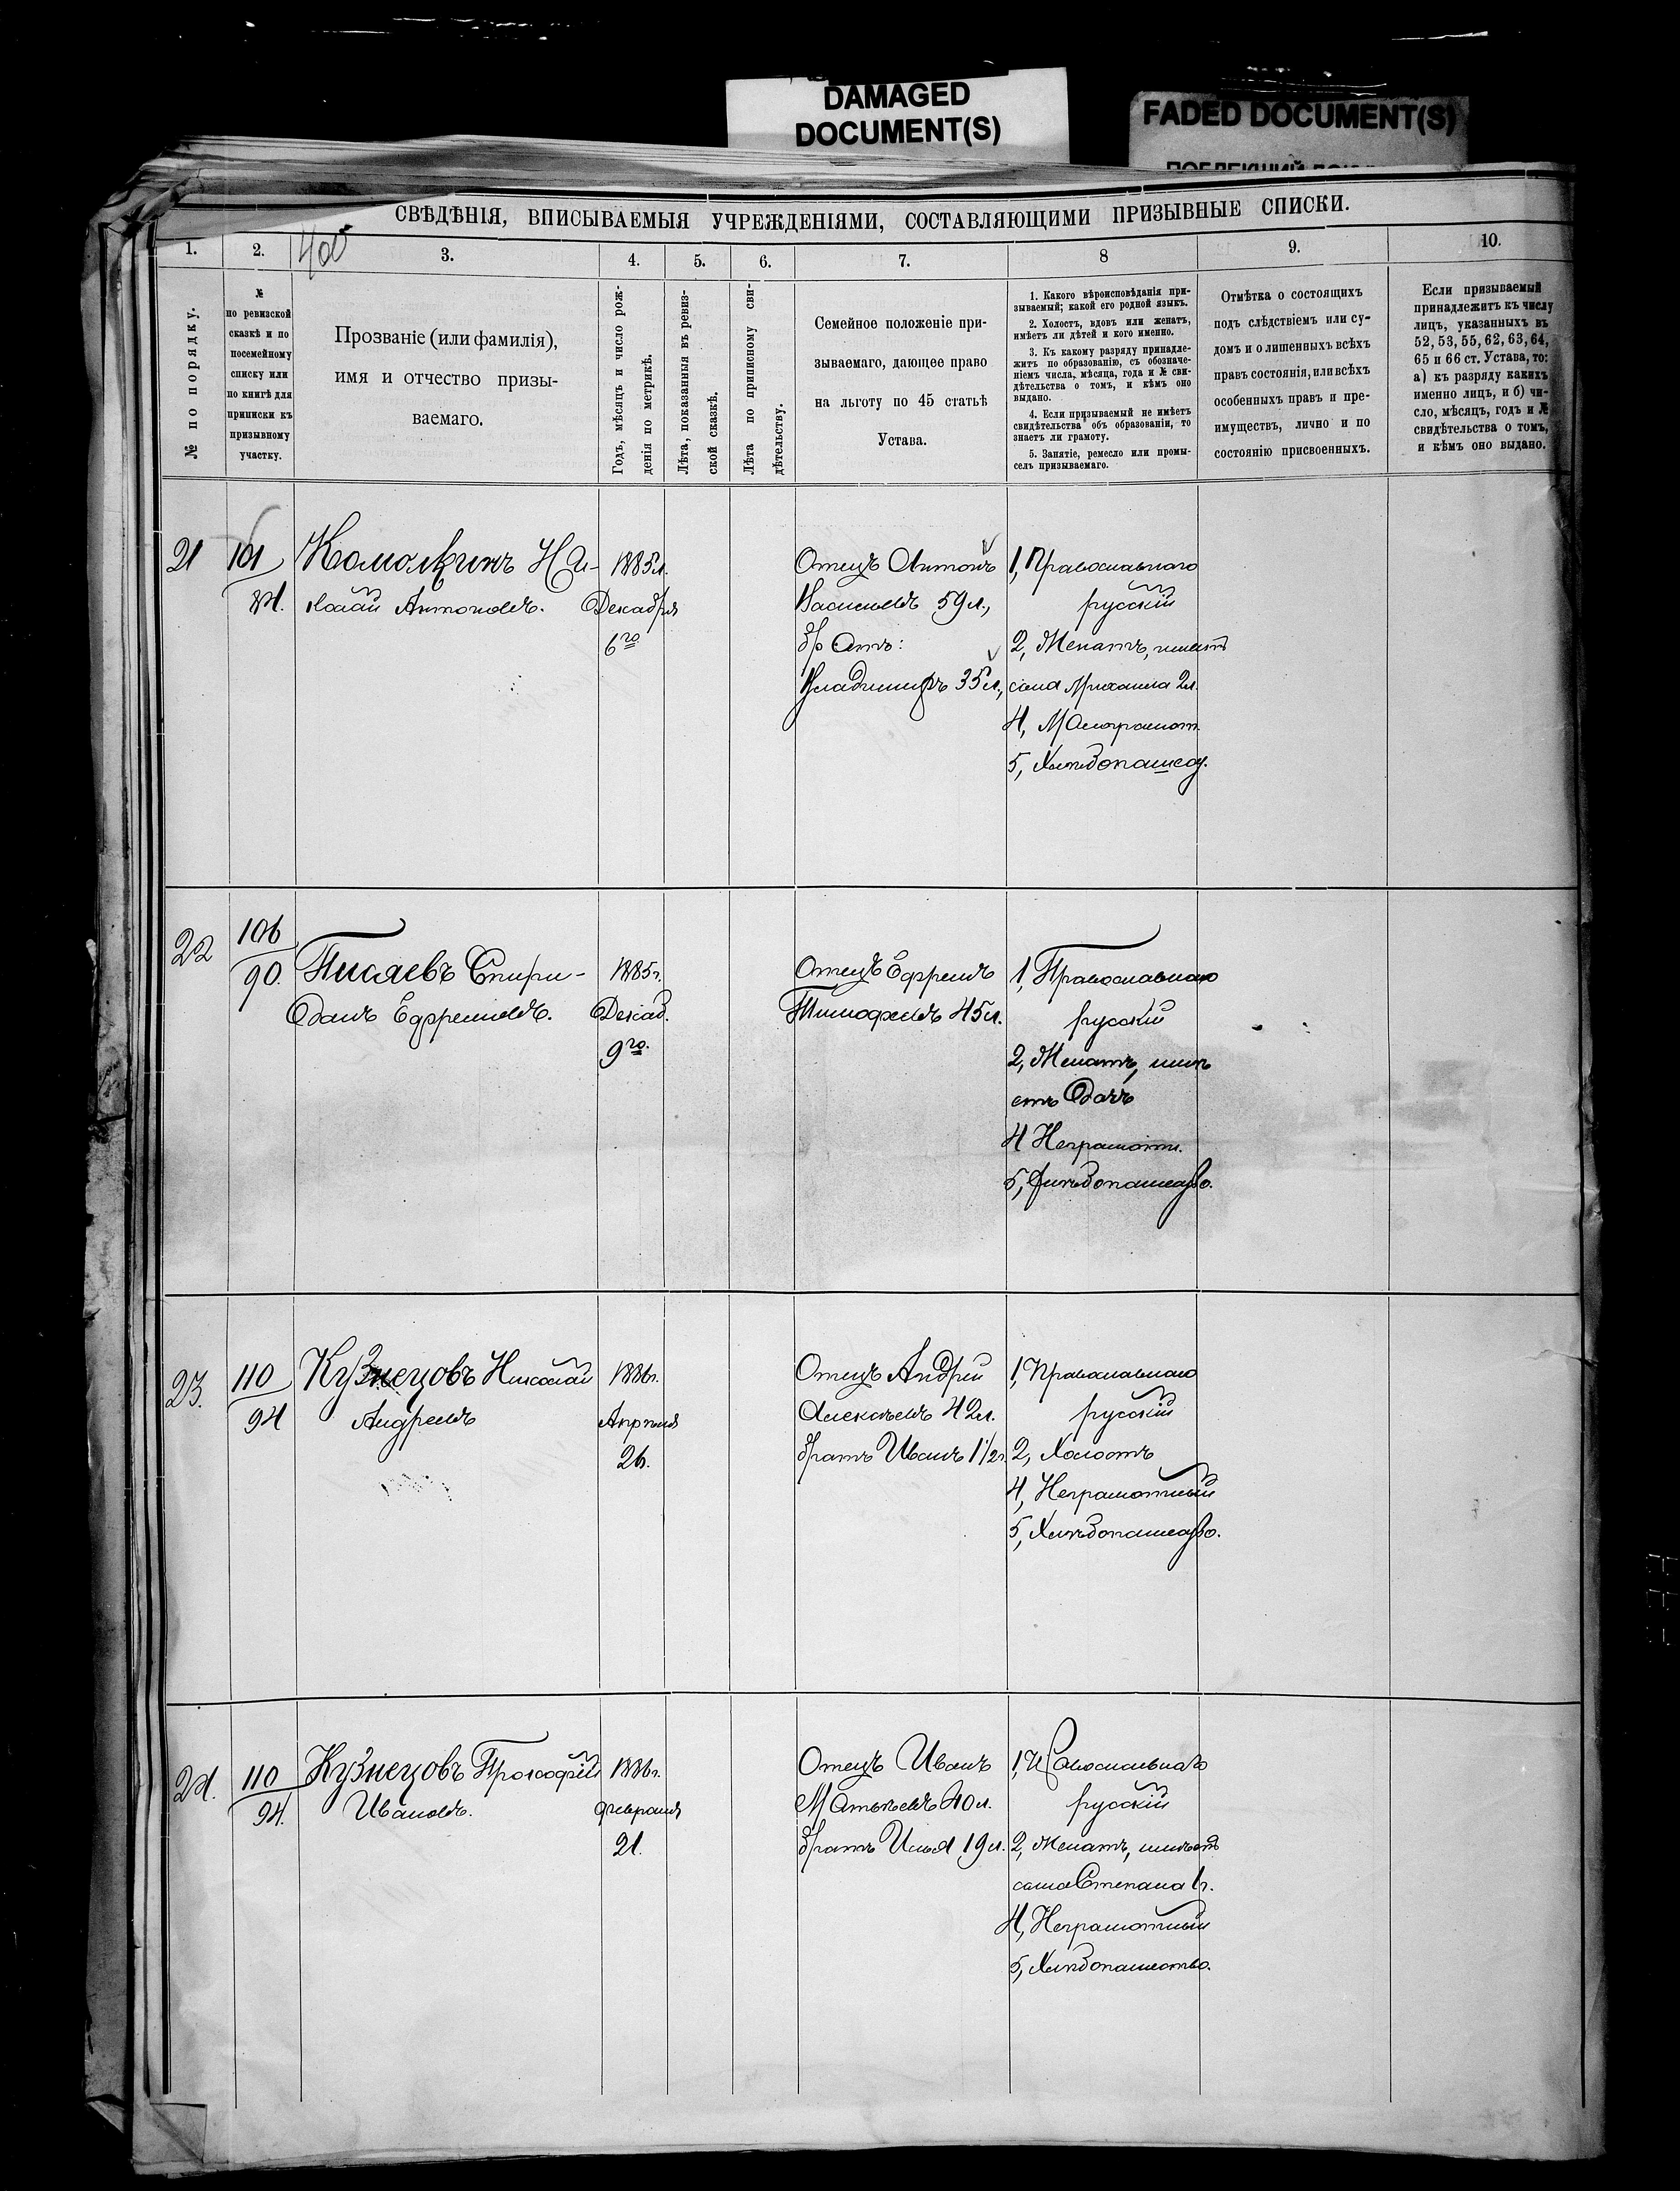 DAMAGED
DOCUMENT(S)
FADED DOCUMENT(S)
СВѢДѢНІЯ, ВПИСЫВАЕМЫЯ УЧРЕЖДЕНІЯМИ, СОСТАВЛЯЮЩИМИ ПРИЗЫВНЫЕ СПИСКИ.
400
1.
2.
3.
4.
5.
6.
7.
8
9.
10.
№ по порядку.
№
по ревизской
сказкѣ и по
посемейному
списку или
по книгѣ для
приписки къ
призывному
участку.
Прозваніе (или фамилія),
имя и отчество призы-
ваемаго.
Годъ, мѣсяцъ и число рож-
денія по метрикѣ.
Лѣта, показанныя въ ревиз-
ской сказкѣ.
Лѣта по приписному сви-
дѣтельству.
Семейное положеніе при-
зываемаго, дающее право
на льготу по 45 статьѣ
Устава.
1. Какого вѣроисповѣданія при-
зываемый; какой его родной языкъ.
2. Холостъ, вдовъ или женатъ,
имѣетъ ли дѣтей и кого именно.
3. Къ какому разряду принадле-
житъ по образованію, съ обозначе-
ніемъ числа, мѣсяца, года и № сви-
дѣтельства о томъ, и кѣмъ оно
выдано.
4. Если призываемый не имѣетъ
свидѣтельства объ образованіи, то
знаетъ ли грамоту.
5. Занятіе, ремесло или промы-
селъ призываемаго.
Отмѣтка о состоящихъ
подъ слѣдствіемъ или су-
домъ и о лишенныхъ всѣхъ
правъ состоянія, или всѣхъ
особенныхъ правъ и пре-
имуществъ, лично и по
состоянію присвоенныхъ.
Если призываемый
принадлежитъ къ числу
лицъ, указанныхъ въ
52, 53, 55, 62, 63, 64,
65 и 66 ст. Устава, то:
а) къ разряду какихъ
именно лицъ, и б) чи-
сло, мѣсяцъ, годъ и №
свидѣтельства о томъ,
и кѣмъ оно выдано.
21
101
84.
Комолкинъ Ни-
колай Антоновъ.
1885г.
Декабря
6го
Отецъ Антонъ
Васильевъ 59 л.,
братъ:
Владимиръ 35 л.,
1, Православнаго
русскій
2, Женатъ, имѣетъ
сына Михаила 2 л.
4, Малограмот.
5, Хлѣбопашес.
22
106
90.
Писяевъ Спири-
донъ Ефремовъ.
1885г.
Декаб.
9го.
Отецъ Ефремъ
Тимофеевъ 45 л.
1, Православнаго
русскій
2, Женатъ, имѣ-
етъ дочь
4 Неграмотн.
5, Хлѣбопашество.
23.
110
94
Кузнецовъ Николай
Андреевъ
1886г.
Апрѣля
26.
Отецъ Андрей
Алексѣевъ 42 л.
братъ Иванъ 1½ г.
1, Православнаго
русскій
2, Холостъ
4, Неграмотный
5, Хлѣбопашество.
24.
110
94.
Кузнецовъ Прокофій
Ивановъ.
1886г.
февраля
21.
Отецъ Иванъ
Матвѣевъ 40 л.
братъ Илья 19 л.
1, Православнаго
русскій
2, Женатъ, имѣетъ
сына Степана 1 г.
4, Неграмотный
5, Хлѣбопашество.